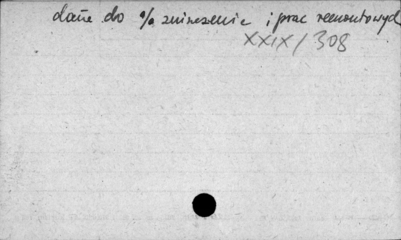 dane do % zniszczenia i prac remontowych
XXIX/308